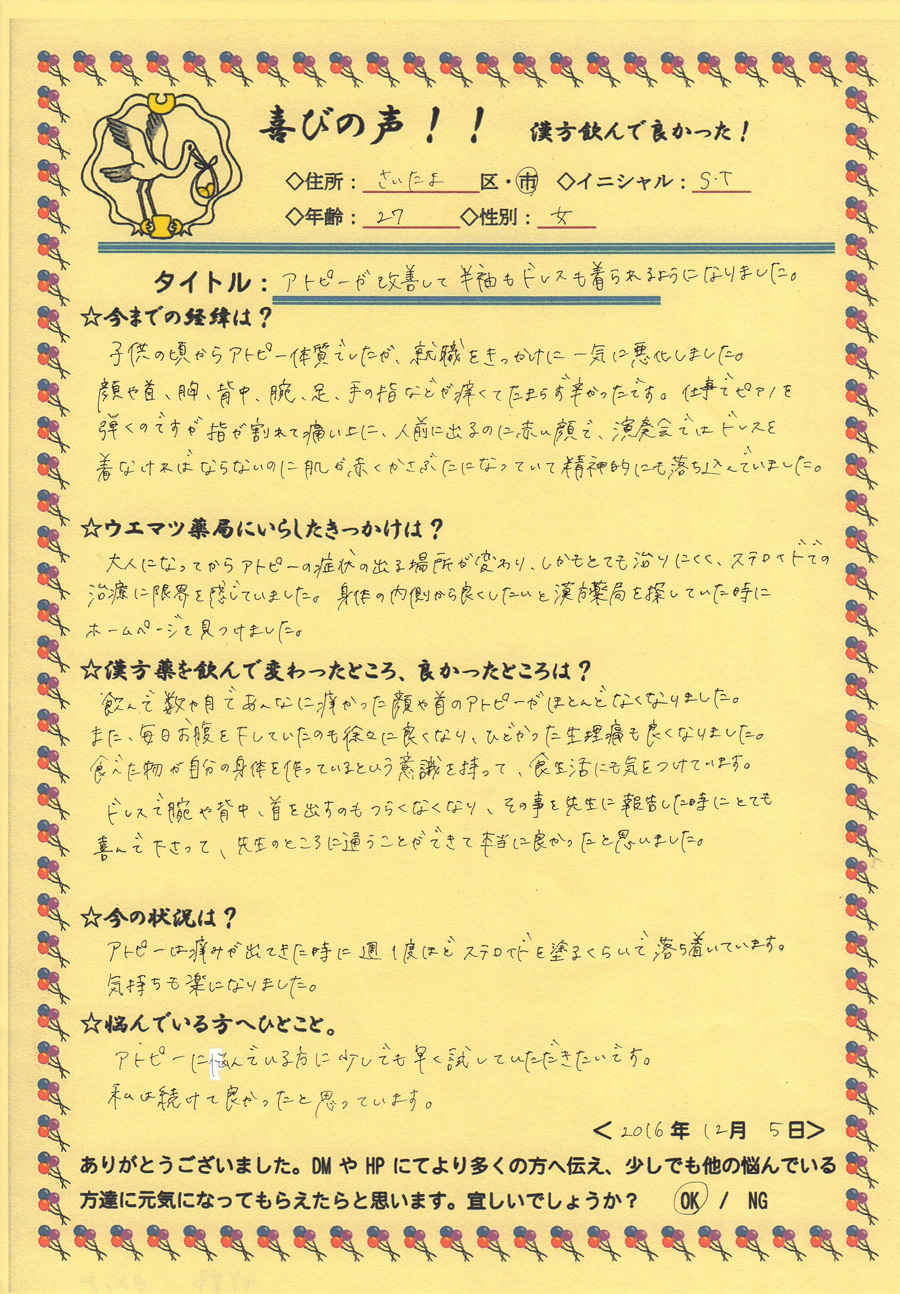 喜びの声！！ 漢方飲んで良かった！
◇住所：さいたま区・市 ◇イニシャル：S.T
◇年齢：27 ◇性別：女
タイトル：アトピーが改善して半袖もドレスも着られるようになりました。
☆今までの経緯は？
子供の頃からアトピー体質でしたが、就職をきっかけに一気に悪化しました。
顔や首、胸、背中、腕、足、手の指などが痒くてたまらず辛かったです。仕事でピアノを
弾くのですが指が割れて痛い上に、人前に出るのに赤い顔で、演奏会ではドレスを
着なければならないのに肌が赤くかさぶたになっていて精神的にも落ち込んでいました。
☆ウエマツ薬局にいらしたきっかけは？
大人になってからアトピーの症状の出る場所が変わり、しかもとても治りにくく、ステロイドでの
治療に限界を感じていました。身体の内側から良くしたいと漢方薬局を探していた時に
ホームページを見つけました。
☆漢方薬を飲んで変わったところ、良かったところは？
飲んで数ヶ月であんなに痒かった顔や首のアトピーがほとんどなくなりました。
また、毎日お腹を下していたのも徐々に良くなり、ひどかった生理痛も良くなりました。
食べた物が自分の身体を作っているという意識を持って、食生活にも気をつけています。
ドレスで腕や背中、首を出すのもつらくなくなり、その事を先生に報告した時にとても
喜んで下さって、先生のところに通うことができて本当に良かったと思いました。
☆今の状況は？
アトピーは痒みが出てきた時に週1度ほどステロイドを塗るくらいで落ち着いています。
気持ちも楽になりました。
☆悩んでいる方へひとこと。
アトピーに悩んでいる方に少しでも早く試していただきたいです。
私は続けて良かったと思っています。
＜2016年12月5日＞
ありがとうございました。DMやHPにてより多くの方へ伝え、少しでも他の悩んでいる
方達に元気になってもらえたらと思います。宜しいでしょうか？ OK / NG